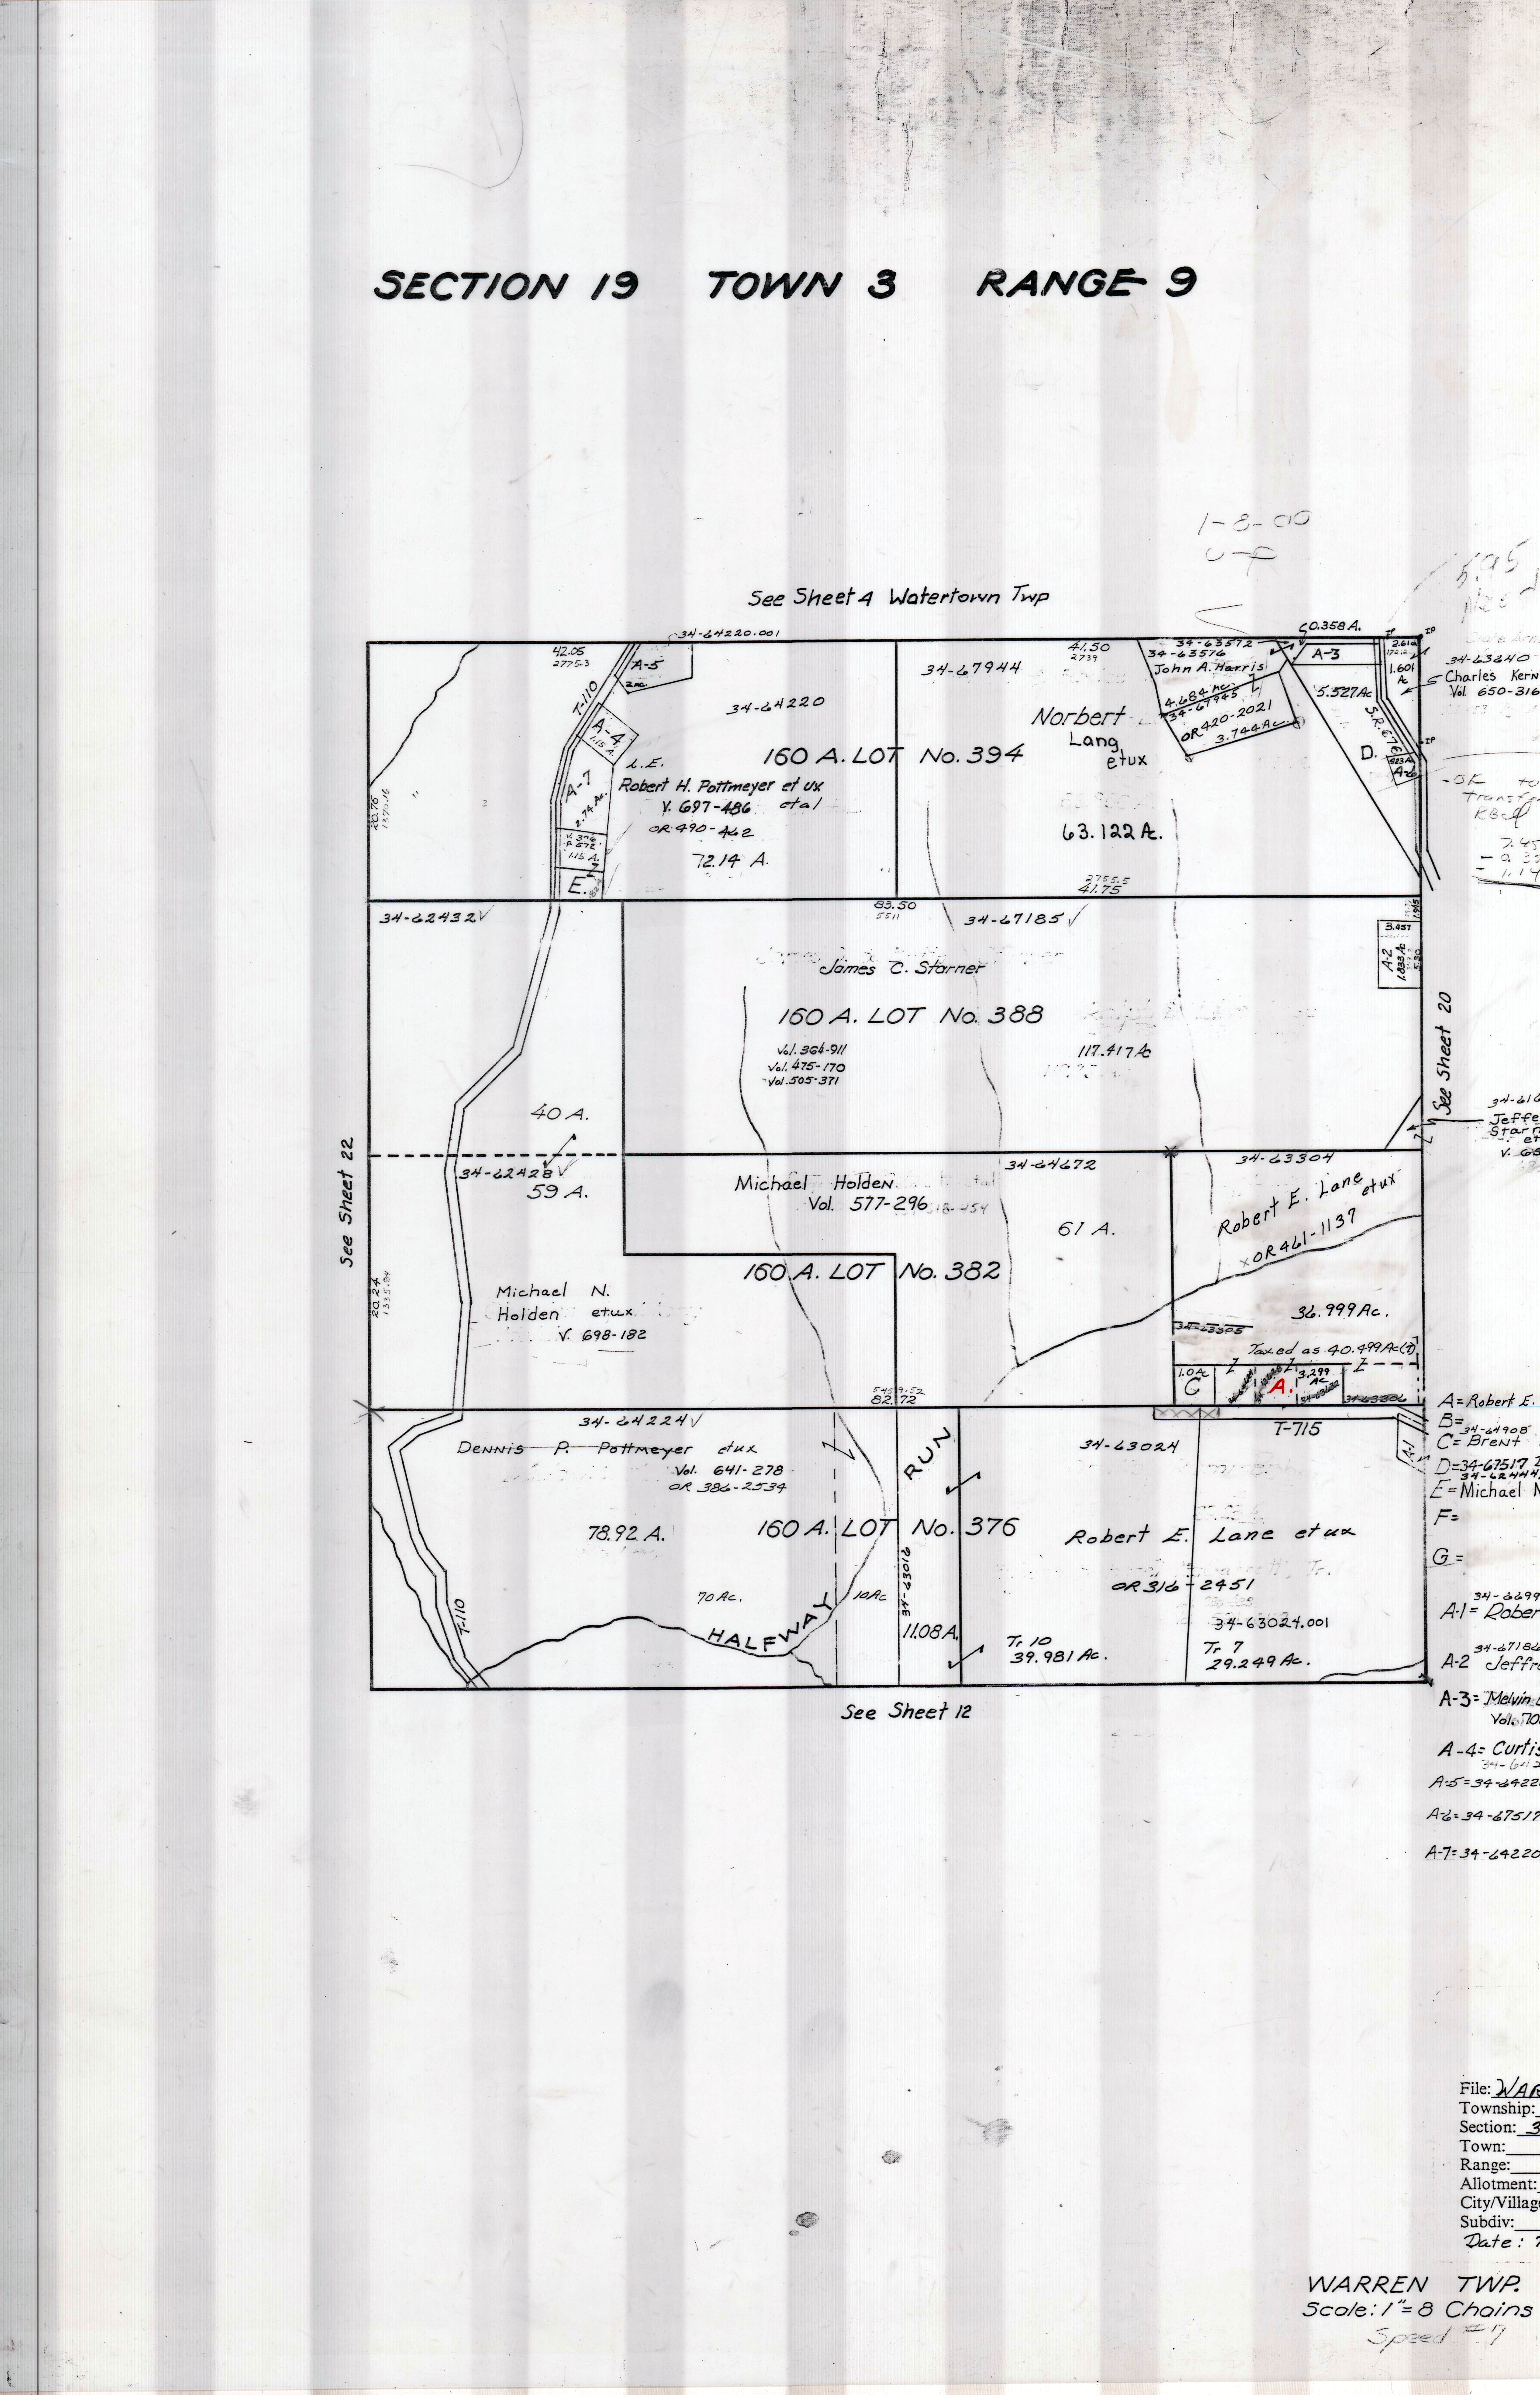 SECTION 19 TOWN 3 RANGE 9
1-8-00
See Sheet 4 Watertown Twp
34-64220.001
0.358 A.
42.05
2775.3
A-5
2 AC
T-110
34-64220
A-4
1.15 A.
A-7
2.74 Ac.
L.E.
Robert H. Pottmeyer et ux
V. 697-486 etal
OR 490-462
72.14 A.
V. 376
P. 672
1.15 A.
E.
20.76
1370.16
160 A. LOT No. 394
34-67944
41.50
2739
Norbert
Lang
etux
63.122 A.
2755.5
41.75
34-63572
34-63576
John A. Harris
4.684 Ac.
34-67945
OR 420-2021
3.744 Ac.
A-3
5.527 Ac
S.R. 676
D.
A-6
1.601
Ac
34-63640
Charles Kern
Vol 650-316
-OK to
Transfer
34-62432
83.50
5511
34-67185
James C. Starner
160 A. LOT No. 388
Vol. 364-911
Vol. 475-170
Vol. 505-371
117.417 Ac
3.457
A-2
1.833 Ac
See Sheet 20
40 A.
See Sheet 22
34-62428
59 A.
34-64672
Michael Holden
Vol. 577-296
61 A.
34-63304
Robert E. Lane
etux
OR 461-1137
160 A. LOT No. 382
Michael N.
Holden etux
V. 698-182
20.24
1335.84
36.999 Ac.
34-63305
Taxed as 40.499 Ac(?)
1.0 Ac
C
A.
3.299
AC
34-63306
5459.52
82.72
T-715
34-64224
Dennis P. Pottmeyer etux
Vol. 641-278
OR 386-2534
78.92 A.
160 A. LOT No. 376
70 Ac.
10 Ac
HALFWAY RUN
34-63016
11.08 A.
34-63024
Robert E. Lane et ux
OR 316-2451
34-63024.001
Tr 10
39.981 Ac.
Tr 7
29.249 Ac.
T-110
A-1
See Sheet 12
34-616
Jeffe
Starn
et
A=Robert E.
B=
34-64908
C=Brent
D=34-67517
34-62444
E=Michael N
F=
G=
34-6699
A-1= Rober
34-67186
A-2 Jeffr
A-3= Melvin
Vol. 70
A-4= Curtis
A-5=34-6422
A-6=34-67517
A-7=34-64220
File: WAR
Township:
Section: 3
Town:
Range:
Allotment:
City/Villag
Subdiv:
Date:
WARREN TWP.
Scale: 1"=8 Chains
Speed #7